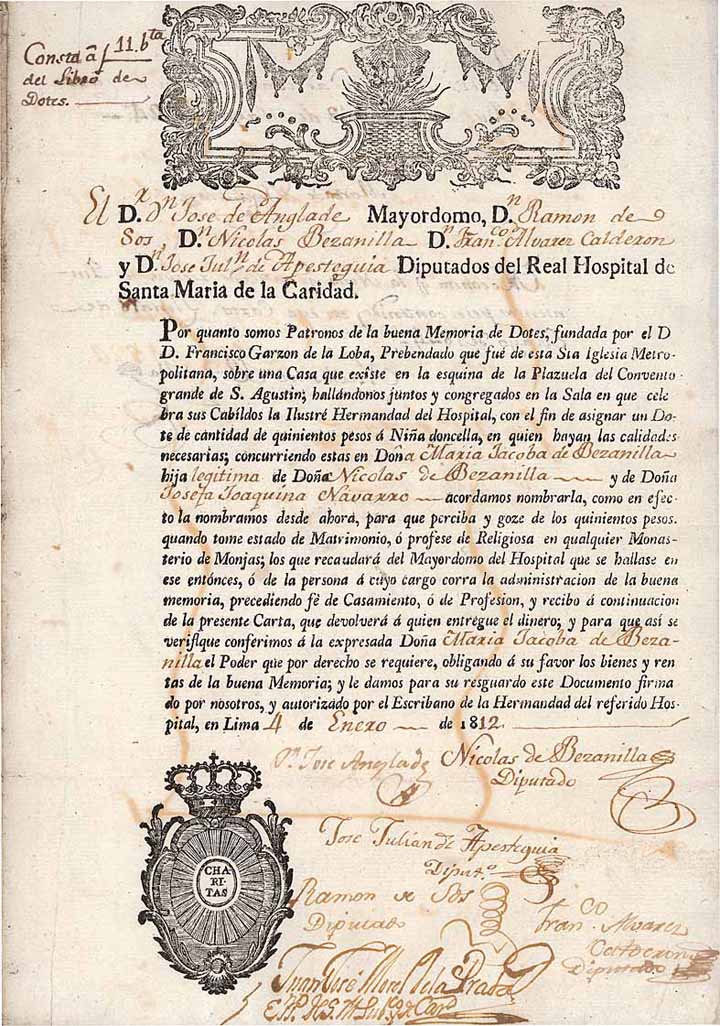 Consta â f 11. bta
del Libro de
Dotes.
El D.r Dn Jose de Anglade Mayordomo, D.n Ramon de
Sos, D.n Nicolas Bezanilla D.n Fran.co Alvarez Calderon
y D.n Jose Jul.n de Apesteguia Diputados del Real Hospital de
Santa Maria de la Caridad.
Por quanto somos Patronos de la buena Memoria de Dotes, fundada por el D
D. Francisco Garzon de la Loba, Prebendado que fué de esta Sta Iglesia Metro-
politana, sobre una Casa que existe en la esquina de la Plazuela del Convento
grande de S. Agustin; hallándonos juntos y congregados en la Sala en que cele
bra sus Cabildos la Ilustré Hermandad del Hospital, con el fin de asignar un Do-
te de cantidad de quinientos pesos á Niña doncella, en quien hayan las calidades
necesarias; concurriendo estas en Doña Maria Jacoba de Bezanilla
hija legitima de Doña Nicolas de Bezanilla y de Doña
Josefa Joaquina Navarro acordamos nombrarla, como en efec-
to la nombramos desde ahora, para que perciba y goze de los quinientos pesos.
quando tome estado de Matrimonio, ó profese de Religiosa en qualquier Monas-
terio de Monjas; los que recaudará del Mayordomo del Hospital que se hallase en
ese entónces, ó de la persona á cuyo cargo corra la administracion de la buena
memoria, precediendo fè de Casamiento, ó de Profesion, y recibo á continuacion
de la presente Carta, que devolverá á quien entregue el dinero; y para que así se
verifique conferimos á la expresada Doña Maria Jacoba de Beza-
nilla el Poder que por derecho se requiere, obligando á su favor los bienes y ren
tas de la buena Memoria; y le damos para su resguardo este Documento firma
do por nosotros, y autorizado por el Escribano de la Hermandad del referido Hos-
pital, en Lima 4 de Enero de 1812.
Jose Anglade Nicolas de Bezanilla
Diputado
Jose Julian de Apesteguia
Diput.o
CHA
RI-
TAS
Ramon de Sos
Diputado
Fran.co Alvarez
Calderon
Diputado
Juan Jose Morel de la Prada